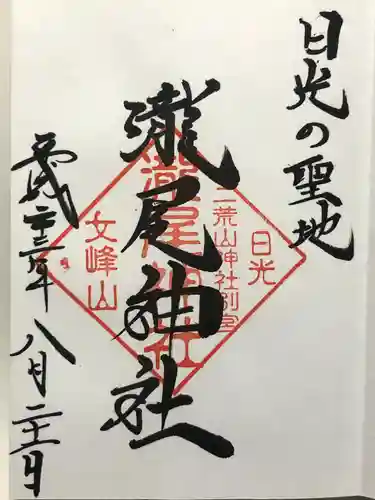 日光の聖地
瀧尾神社
日光
二荒山神社別宮
瀧尾神社
女峰山
平成二十三年八月二十二日